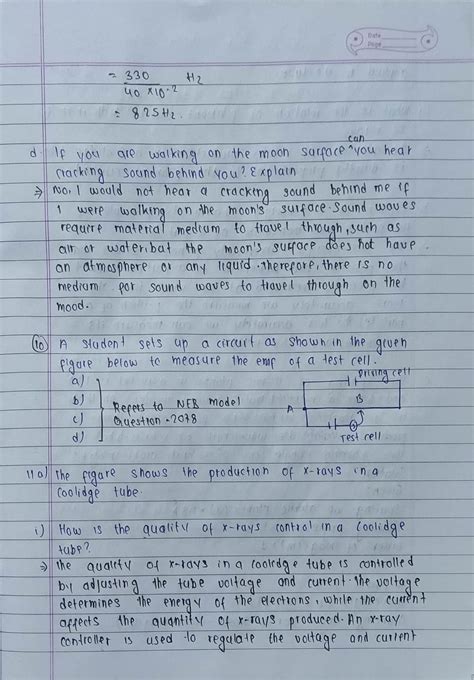 Date
Page
= 330 / 40 × 10⁻² Hz
= 825Hz.
d. If you are walking on the moon surface can you hear
cracking sound behind you? Explain
⇒ No. I would not hear a cracking sound behind me if
I were walking on the moon's surface. Sound waves
require material medium to travel through, such as
air or water. but the moon's surface does not have
an atmosphere or any liquid. therefore, there is no
medium for sound waves to travel through on the
mood.
10 A student sets up a circuit as shown in the given
figure below to measure the emf of a test cell.
a)
b)
c)
d)
Refers to NEB model
Question. 2078
Driving cell
A
B
Test cell
11 a) The figare shows the production of x-rays in a
coolidge tube.
i) How is the quality of x-rays control in a coolidge
tube?
⇒ the quality of x-rays in a coolidge tube is controlled
by adjusting the tube voltage and current. the voltage
determines the energy of the electrons, while the current
affects the quantity of x-rays produced. An x-ray
controller is used to regulate the voltage and current